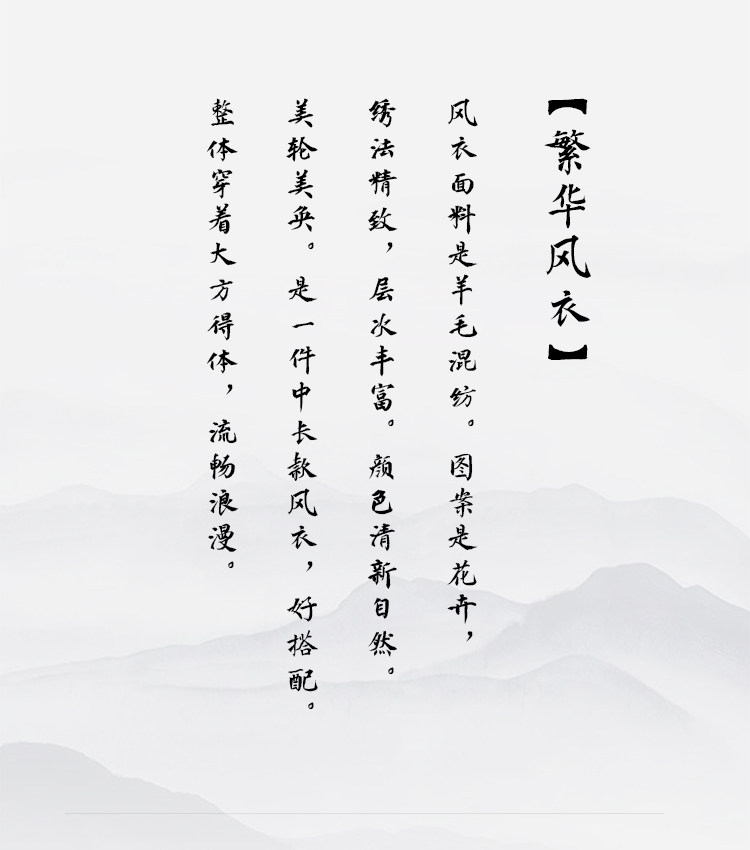 【繁华风衣】
风衣面料是羊毛混纺。图案是花卉，
绣法精致，层次丰富。颜色清新自然。
美轮美奂。是一件中长款风衣，好搭配。
整体穿着大方得体，流畅浪漫。